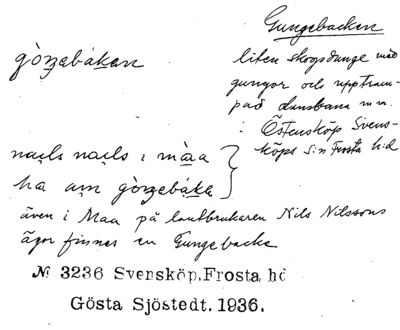 Gungebacken
gòꞑebákan
liten skogsdunge med
gungor och upptram-
pad dansbana m.m.
i Östensköp Svens-
köps s:n Frosta h:d
nils nils i màa
ha
även i Maa på lantbrukaren Nils Nilssons
ägor finnes en Gungebacke
№ 3236 Svensköp, Frosta hd
Gösta Sjöstedt. 1936.